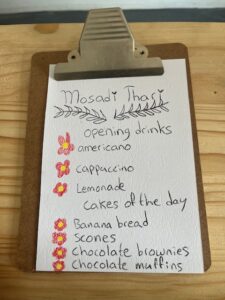 Mosadi Thari
opening drinks
americano
cappuccino
Lemonade
cakes of the day
Banana bread
Scones
Chocolate brownies
Chocolate muffins